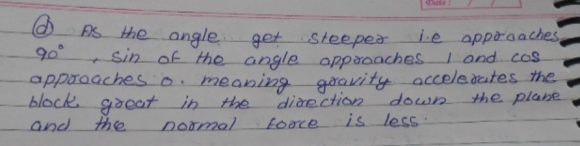 Date: / /
(d) As the angle get steeper i.e approaches
90°, sin of the angle approaches 1 and cos
approaches 0. meaning gravity accelerates the
block great in the direction down the plane
and the normal force is less.